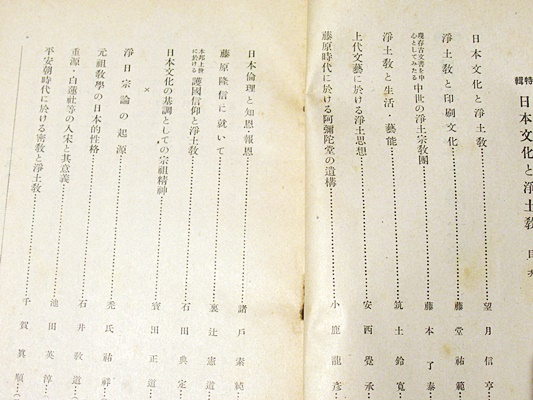 特輯 日本文化と淨土敎 目次
日本文化と淨土敎 望月信亨
淨土敎と印刷文化 藤堂祐範
現存古文書を中心としてみたる 中世の淨土宗敎團 藤本了泰
淨土敎と生活・藝能 筑土鈴寛
上代文藝に於ける淨土思想 安西覺承
藤原時代に於ける阿彌陀堂の遺構 小鹿龍彥
日本倫理と知恩・報恩 諸戶素純
藤原隆信に就いて 裏辻憲道
本邦上世に於ける 護國信仰と淨土敎 石田典定
日本文化の基調としての宗祖精神 寶田正道
×
淨日宗論の起源 禿氏祐祥
元祖敎學の日本的性格 石井敎道
重源・白蓮社等の入宋と其意義 池田英淳
平安朝時代に於ける密敎と淨土敎 千賀眞順